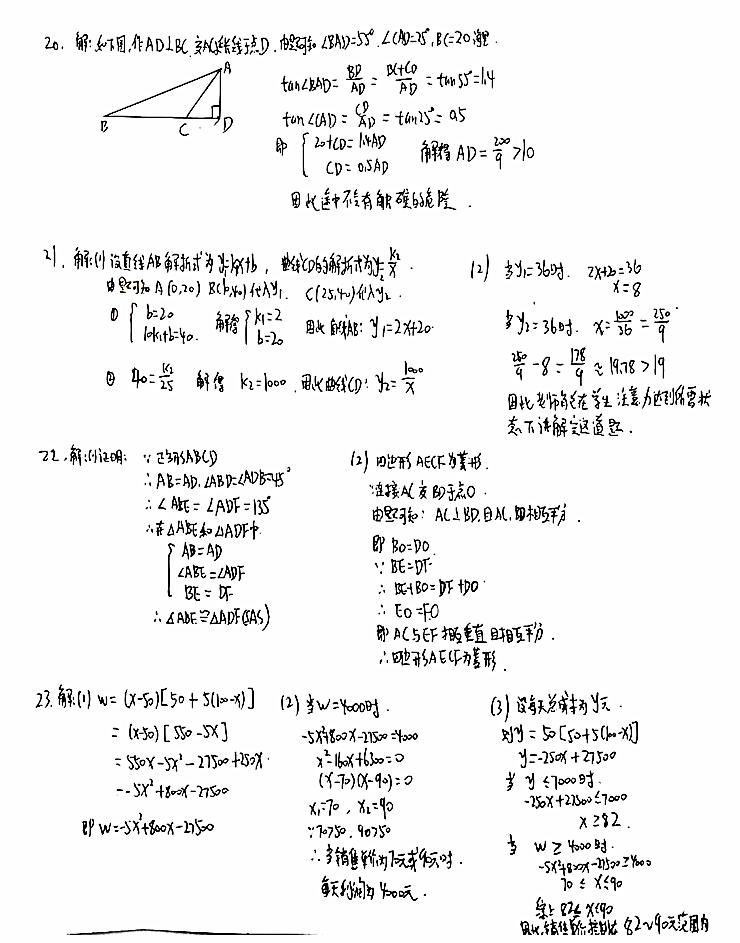 20. 解:如下图,作AD⊥BC,交BC延长线于点D.由题可知∠BAD=55°,∠CAD=25°,BC=20海里.
A
B C D
tan∠BAD=BD/AD=(BC+CD)/AD=tan55°=1.4
tan∠CAD=CD/AD=tan25°=0.5
即 { 20+CD=1.4AD
CD=0.5AD 解得AD=200/9>10
因此途中不会有触礁的危险.
21. 解:(1)设直线AB解析式为y₁=k₁x+b,曲线CD的解析式为y₂=k₂/x
由题可知A(0,20) B(10,40)代入y₁. C(25,40)代入y₂.
① { b=20
10k₁+b=40. 解得 { k₁=2
b=20 因此直线AB:y₁=2x+20.
② 40=k₂/25 解得 k₂=1000.因此曲线CD:y₂=1000/x
(2) 当y₁=36时. 2x+20=36
x=8
当y₂=36时. x=1000/36=250/9
250/9-8=178/9≈19.78>19
因此老师能在学生注意力达到所需状
态下讲解完这道题.
22.解:(1)证明: ∵正方形ABCD
∴AB=AD,∠ABD=∠ADB=45°
∴∠ABE=∠ADF=135°
∴在△ABE和△ADF中.
{ AB=AD
∠ABE=∠ADF
BE=DF
∴△ABE≌△ADF(SAS)
(2) 四边形AECF为菱形.
连接AC交BD于点O.
由题可知: AC⊥BD,且AC,BD相互平分.
即BO=DO.
∵BE=DF
∴BE+BO=DF+DO
∴EO=FO
即AC与EF相互垂直且相互平分.
∴四边形AECF为菱形.
23.解:(1) W=(x-50)[50+5(100-x)]
=(x-50)[550-5x]
=550x-5x²-27500+250x
=-5x²+800x-27500
即W=-5x²+800x-27500
(2) 当W=4000时.
-5x²+800x-27500=4000
x²-160x+6300=0
(x-70)(x-90)=0
x₁=70, x₂=90
∵70>50, 90>50
∴当销售单价为70元或90元时.
每天利润为4000元.
(3) 设每天总成本为y元.
则y=50[50+5(100-x)]
y=-250x+27500
当y≤7000时.
-250x+27500≤7000
x≥82.
当W≥4000时.
-5x²+800x-27500≥4000
70≤x≤90
综上82≤x≤90
因此销售单价控制在82~90元范围内